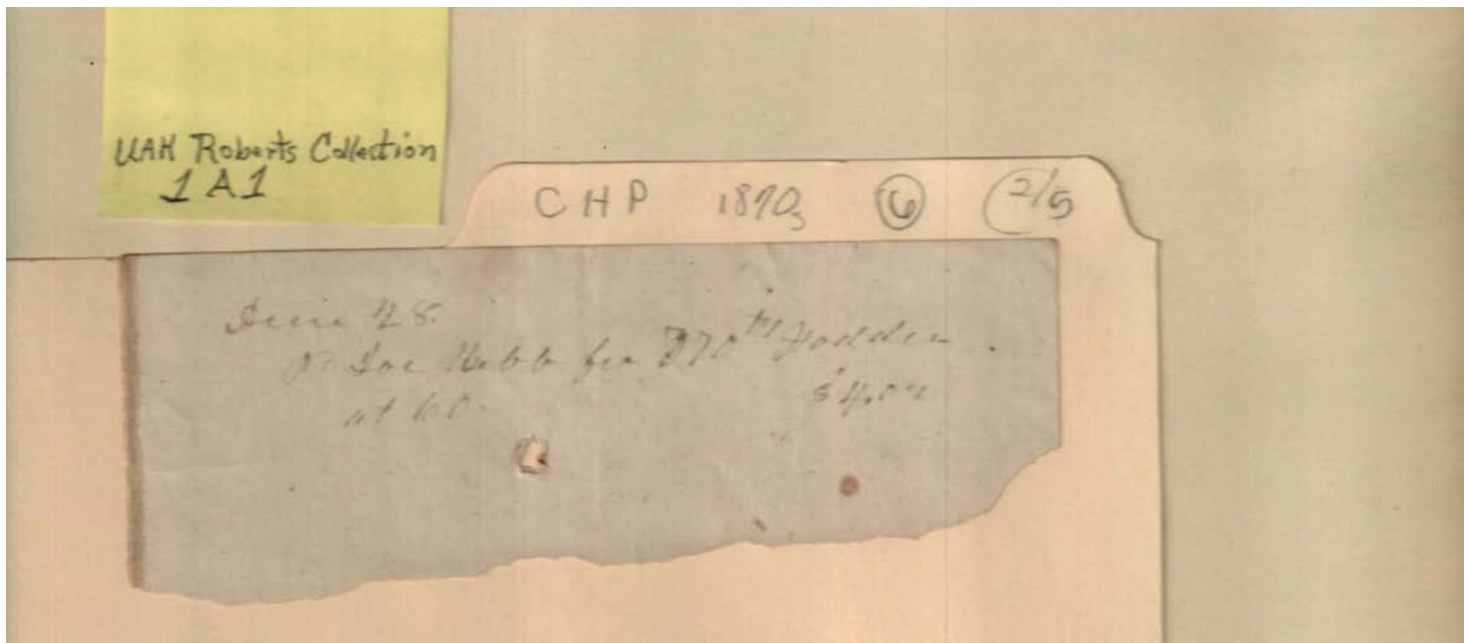 UAH Roberts Collection
1A1
CHP 1870s 6 2/5
28.
Joe Webb for 770 lbs fodder
at 60. $4.00